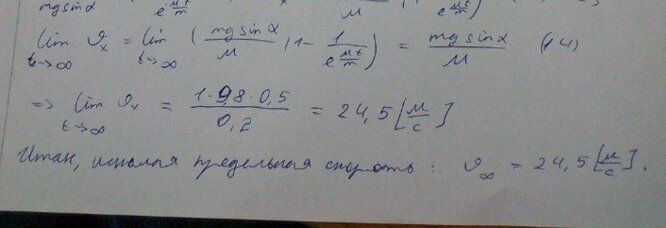 mg sin α e^(μt/m) μ e^(μt/m)
lim t→∞ ϑx = lim t→∞ (mg sin α / μ (1 - 1 / e^(μt/m))) = mg sin α / μ (14)
=> lim t→∞ ϑx = 1·9,8·0,5 / 0,2 = 24,5 [м/с]
Итак, искомая предельная скорость: ϑ∞ = 24,5 [м/с].